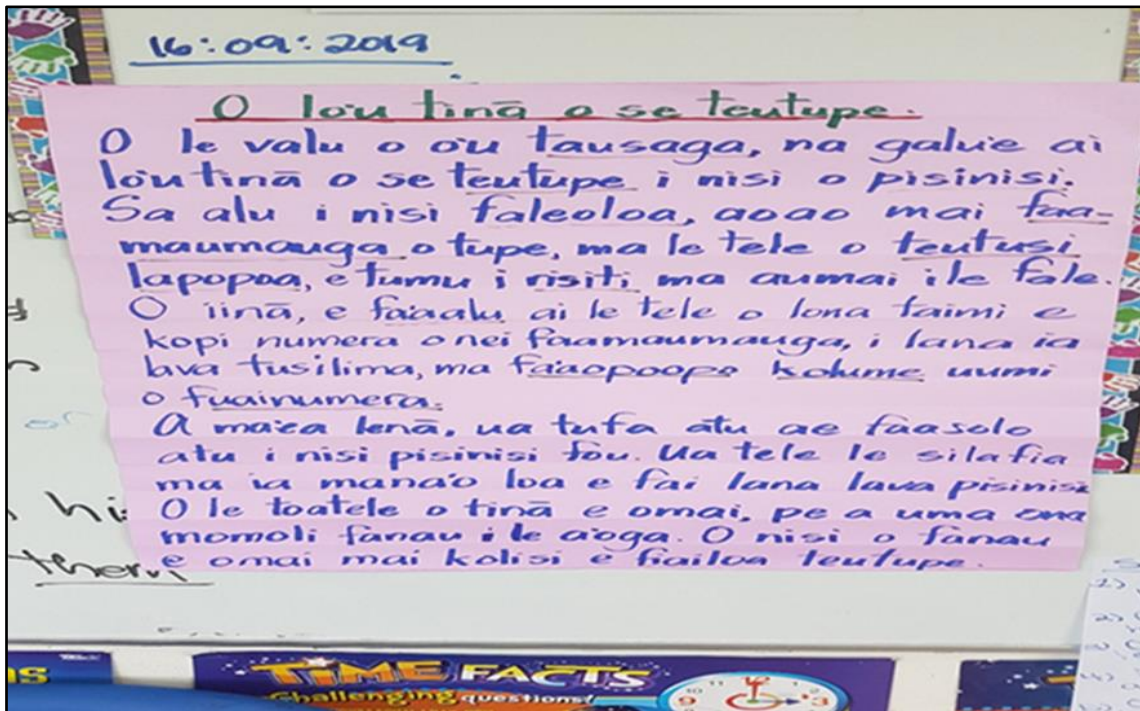 16:09:2019
O lo'u tinā o se teutupe.
O le valu o o'u tausaga, na galue ai
lo'u tinā o se teutupe i nisi o pisinisi.
Sa alu i nisi faleoloa, aoao mai faa-
maumauga o tupe, ma le tele o teutusi
lapopoa, e tumu i risiti ma aumai i le fale.
O iinā, e faaalu ai le tele o lona taimi e
kopi numera o nei faamaumauga, i lana ia
lava tusilima, ma faaopoopo kolume uumi
o fuainumera.
A mae'a lenā, ua tufa atu ae faasolo
atu i nisi pisinisi fou. Ua tele le silafia
ma ia mana'o loa e fai lana lava pisinisi
O le toatele o tinā e omai, pe a uma ona
momoli fanau i le a'oga. O nisi o fanau
e omai mai kolisi e fiailoa teutupe.
hi
them
TIME FACTS
Challenging questions!
11 12 1
9 3